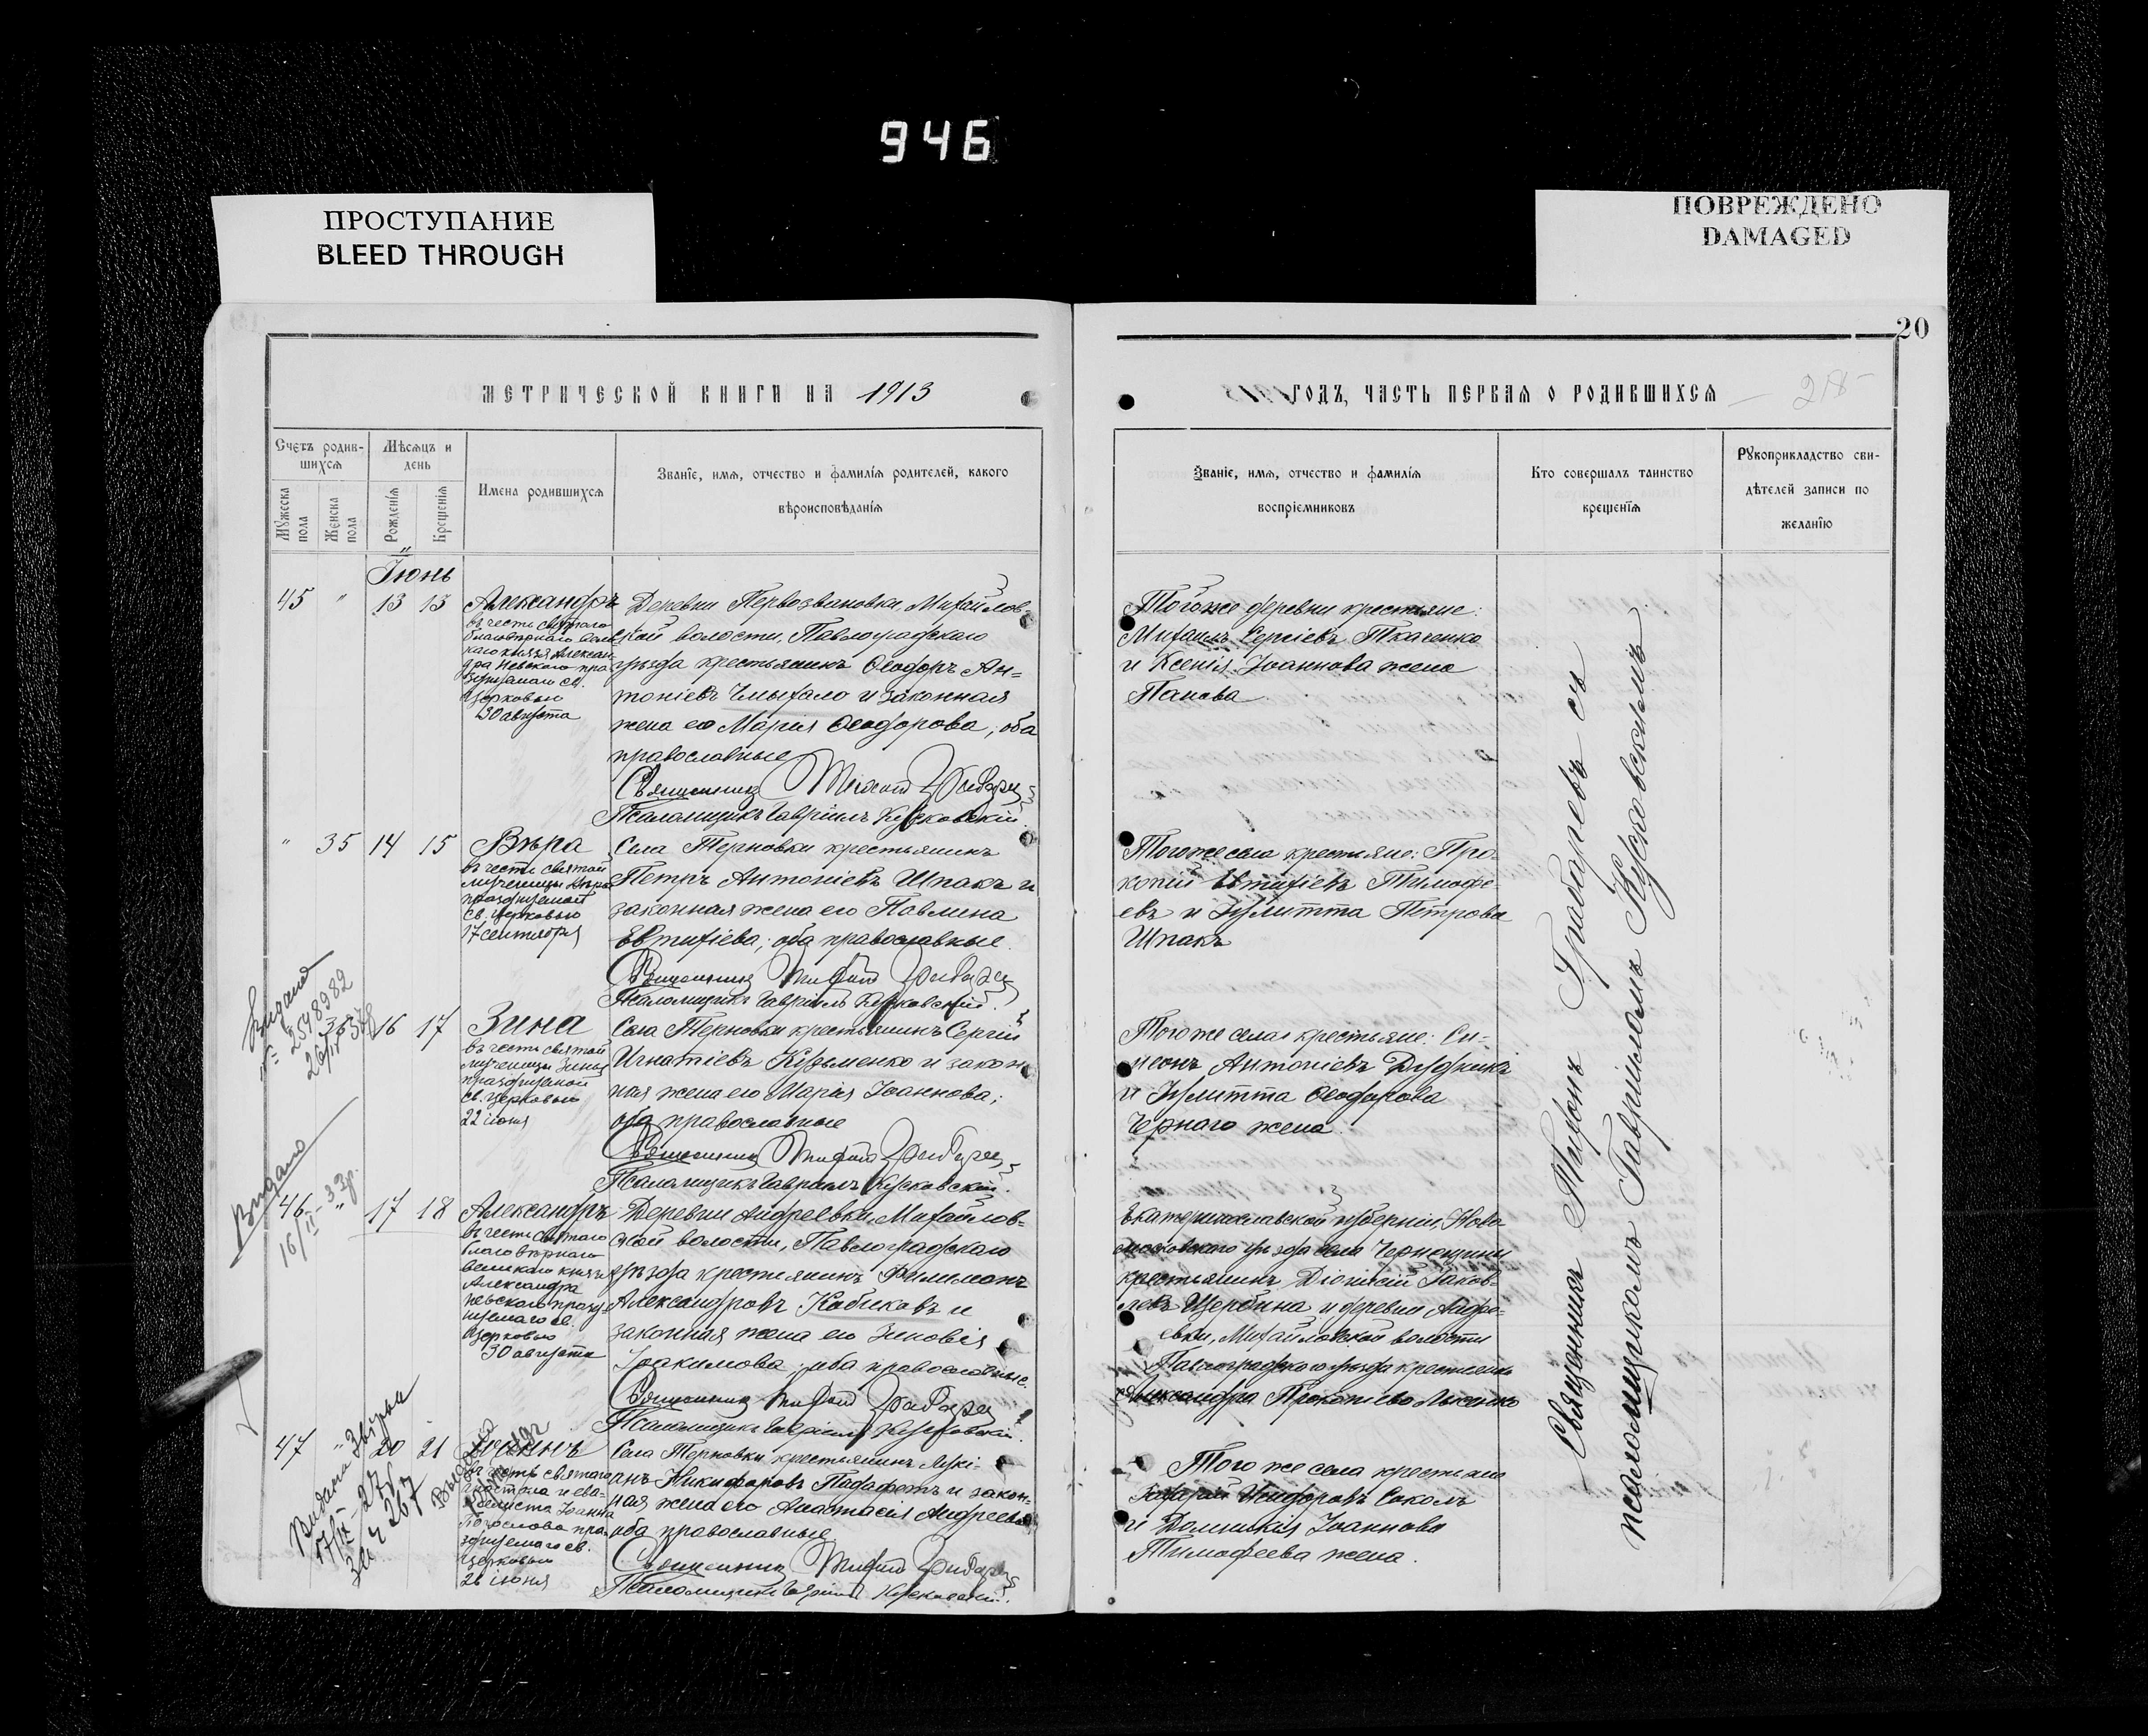 946
ПРОСТУПАНИЕ
BLEED THROUGH
ПОВРЕЖДЕНО
DAMAGED
20
МЕТРИЧЕСКОЙ КНИГИ НА 1913
ГОДЪ, ЧАСТЬ ПЕРВАЯ О РОДИВШИХСЯ
Счетъ родив-
шихся
Мѣсяцъ и
день
Мужеска
пола
Женска
пола
Рожденія
Крещенія
Имена родившихся
Званіе, имя, отчество и фамилія родителей, какого
вѣроисповѣданія
Званіе, имя, отчество и фамилія
воспріемниковъ
Кто совершалъ таинство
крещенія
Рукоприкладство сви-
дѣтелей записи по
желанію
Іюнь
45 " 13 13
Александръ
въ честь святого
благовѣрнаго вели
каго князя Алексан
дра Невскаго пра
зднуемаго св.
Церковью
30 августа
Деревни Первозвановки, Михайлов-
ской волости, Павлоградскаго
уѣзда крестьянинъ Ѳеодоръ Ан-
тоніевъ Чмыхало и законная
жена его Марія Ѳеодорова, оба
православные
Священникъ Тихонъ Грабарев
Псаломщикъ Гавріилъ Кусковскій.
Тогоже деревни крестьяне:
Михаилъ Сергіевъ Ткаченко
и Ксенія Іоаннова жена
Панова
" 35 14 15
Вѣра
въ честь святой
мученицы Вѣры
празднуемой
св. Церковью
17 сентября
Села Терновки крестьянинъ
Петръ Антоніевъ Шпакъ и
законная жена его Павлина
Евтихіева, оба православные.
Священникъ Тихонъ Грабарев
Псаломщикъ Гавріилъ Кусковскій.
Тогоже села крестьяне: Про-
копій Евтихіевъ Тимофе-
евъ и Іулитта Петрова
Шпакъ
Видано
№ 2548982
36 16 17
Зина
въ честь святой
мученицы Зины
празднуемой
св. Церковью
22 іюня
Села Терновки крестьянинъ Сергій
Игнатіевъ Кузьменко и закон
ная жена его Марія Іоаннова;
оба православные
Священникъ Тихонъ Грабарев
Псаломщикъ Гавріилъ Кусковскій.
Того же села крестьяне: Си-
меонъ Антоніевъ Дудкинъ
и Іулитта Ѳеодорова
Чернаго жена.
Видано
16/II-33р.
46 " 17 18
Александръ
въ честь святого
благовѣрнаго
великаго князя
Александра
Невскаго празд-
нуемаго св.
Церковью
30 августа
Деревни Андреевки, Михайлов-
ской волости, Павлоградскаго
уѣзда крестьянинъ Филимонъ
Александровъ Кабиковъ и
законная жена его Зиновія
Іоакимова, оба православные.
Священникъ Тихонъ Грабарев
Псаломщикъ Гавріилъ Кусковскій.
Екатеринославской губерніи, Ново
московскаго уѣзда села Чернещины
крестьянинъ Діонисій Яков-
левъ Щербина и деревни Андре-
евки, Михайловской волости
Павлоградскаго уѣзда крестьянка
Александра Прокопіева
47 " 20 21
Іоаннъ
въ честь святаго
апостола и еван-
гелиста Іоанна
Богослова пра
зднуемаго св.
Церковью
26 іюня
Села Терновки крестьянинъ Лукі-
анъ Никифоровъ и закон-
ная жена его Анастасія Андреева
оба православные
Священникъ Тихонъ Грабарев
Псаломщикъ Гавріилъ Кусковскій.
Того же села крестьяне
Захарій Соколъ
и Домникія Іоаннова
Тимофеева жена.
Священникъ Тихонъ Грабаревъ съ
псаломщикомъ Гавріиломъ Кусковскимъ